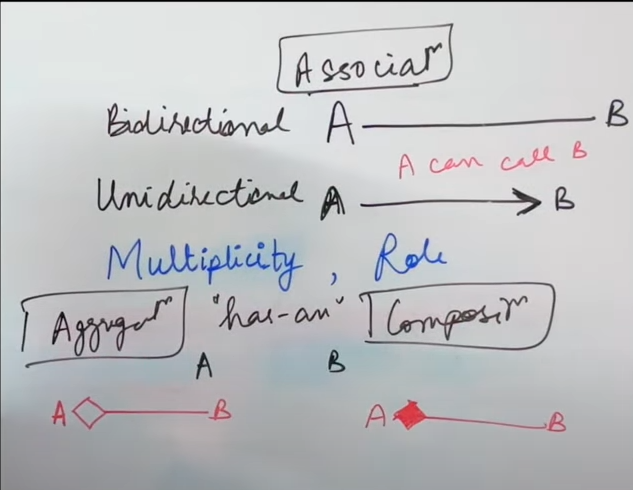 Associaⁿ
Bidirectional A B
A can call B
Unidirectional A B
Multiplicity, Role
Aggregaⁿ "has-an" Composiⁿ
A B
A B A B